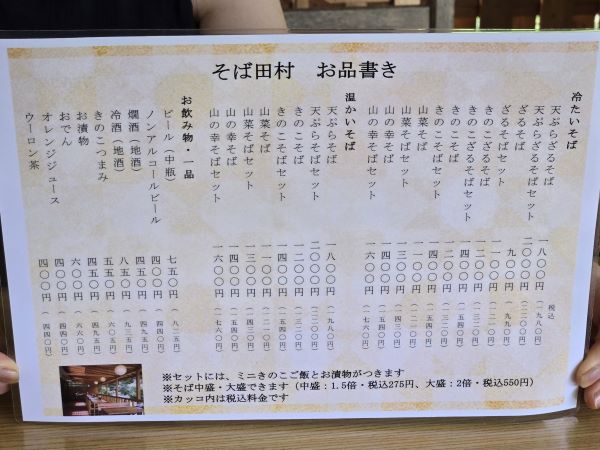 そば田村 お品書き
冷たいそば 税込
天ぷらざるそば 一八〇〇円(一九八〇円)
天ぷらざるそばセット 二〇〇〇円(二二〇〇円)
ざるそば 九〇〇円(九九〇円)
ざるそばセット 一一〇〇円(一二一〇円)
きのこざるそば 一二〇〇円(一三二〇円)
きのこざるそばセット 一四〇〇円(一五四〇円)
きのこそば 一二〇〇円(一三二〇円)
きのこそばセット 一四〇〇円(一五四〇円)
山菜そば 一一〇〇円(一二一〇円)
山菜そばセット 一三〇〇円(一四三〇円)
山の幸そば 一四〇〇円(一五四〇円)
山の幸そばセット 一六〇〇円(一七六〇円)
温かいそば
天ぷらそば 一八〇〇円(一九八〇円)
天ぷらそばセット 二〇〇〇円(二二〇〇円)
きのこそば 一二〇〇円(一三二〇円)
きのこそばセット 一四〇〇円(一五四〇円)
山菜そば 一一〇〇円(一二一〇円)
山菜そばセット 一三〇〇円(一四三〇円)
山の幸そば 一四〇〇円(一五四〇円)
山の幸そばセット 一六〇〇円(一七六〇円)
お飲み物・一品
ビール(中瓶) 七五〇円(八二五円)
ノンアルコールビール 四〇〇円(四四〇円)
燗酒(地酒) 四五〇円(四九五円)
冷酒(地酒) 八五〇円(九三五円)
きのこつまみ 五五〇円(六〇五円)
お漬物 四五〇円(四九五円)
おでん 六〇〇円(六六〇円)
オレンジジュース 四〇〇円(四四〇円)
ウーロン茶 四〇〇円(四四〇円)
※セットには、ミニきのこご飯とお漬物がつきます
※そば中盛・大盛できます(中盛：1.5倍・税込275円、大盛：2倍・税込550円)
※カッコ内は税込料金です